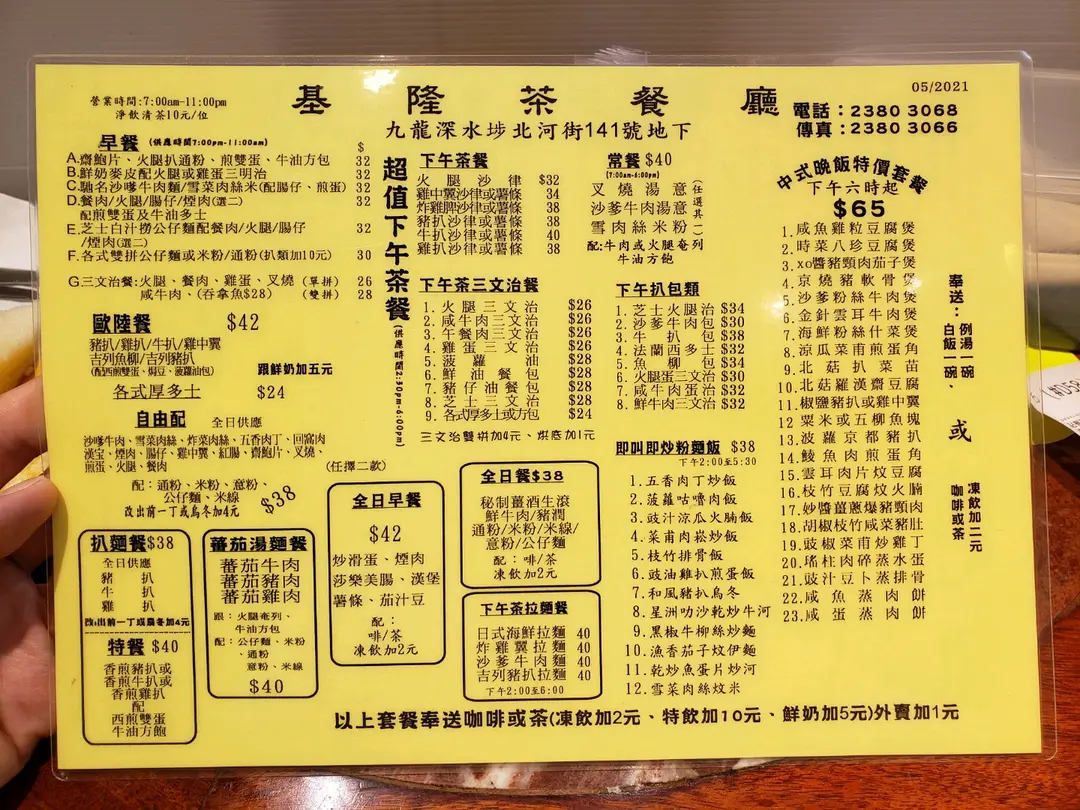 營業時間:7:00am-11:00pm
淨飲清茶10元/位
基隆茶餐廳
九龍深水埗北河街141號地下
05/2021
電話：2380 3068
傳真：2380 3066
早餐 (供應時間7:00pm-11:00am)
$
A.齋鮑片、火腿扒通粉、煎雙蛋、牛油方包 32
B.鮮奶麥皮配火腿或雞蛋三明治 32
C.馳名沙嗲牛肉麵/雪菜肉絲米(配腸仔、煎蛋) 32
D.餐肉/火腿/腸仔/煙肉(選二) 32
配煎雙蛋及牛油多士
E.芝士白汁撈公仔麵配餐肉/火腿/腸仔 32
/煙肉(選二)
F.各式雙拼公仔麵或米粉/通粉(扒類加10元) 30
G.三文治餐:火腿、餐肉、雞蛋、叉燒 (單拼) 26
咸牛肉、(吞拿魚$28) (雙拼) 28
歐陸餐 $42
豬扒/雞扒/牛扒/雞中翼
吉列魚柳/吉列豬扒
(配西煎雙蛋、焗豆、菠蘿油包)
跟鮮奶加五元
各式厚多士 $24
自由配 全日供應
沙嗲牛肉、雪菜肉絲、炸菜肉絲、五香肉丁、回窩肉
漢宝、煙肉、腸仔、雞中翼、紅腸、齋鮑片、叉燒、
煎蛋、火腿、餐肉 (任擇二款)
配：通粉、米粉、意粉、
公仔麵、米線
$38
改出前一丁或烏冬加4元
扒麵餐$38
全日供應
豬扒
牛扒
雞扒
改出前一丁或烏冬加4元
特餐 $40
香煎豬扒或
香煎牛扒或
香煎雞扒
配
西煎雙蛋
牛油方飽
蕃茄湯麵餐
蕃茄牛肉
蕃茄豬肉
蕃茄雞肉
跟：火腿奄列、
牛油方包
配：公仔麵、米粉
、通粉
意粉、米線
$40
全日早餐
$42
炒滑蛋、煙肉
莎樂美腸、漢堡
薯條、茄汁豆
配：
啡/茶
凍飲加2元
超值下午茶餐
(供應時間2:30pm-6:00pm)
下午茶餐
火腿沙律 $32
雞中翼沙律或薯條 34
炸雞脾沙律或薯條 38
豬扒沙律或薯條 38
牛扒沙律或薯條 40
雞扒沙律或薯條 38
下午茶三文治餐
1.火腿三文治 $26
2.咸牛肉三文治 $26
3.午餐肉三文治 $26
4.雞蛋三文治 $26
5.菠蘿油 $28
6.鮮油餐包 $28
7.豬仔油餐包 $28
8.芝士三文治 $28
9.各式厚多士或方包 $24
三文治雙拼加4元、烘底加1元
全日餐$38
秘制薑酒生滾
鮮牛肉/豬潤
通粉/米粉/米線/
意粉/公仔麵
配：啡/茶
凍飲加2元
下午茶拉麵餐
日式海鮮拉麵 40
炸雞翼拉麵 40
沙爹牛肉麵 40
吉列豬扒拉麵 40
下午2:00至6:00
常餐 $40
(7:00am-6:00pm)
叉燒湯意
沙爹牛肉湯意
雪肉絲米粉
(任選其一)
配:牛肉或火腿奄列
牛油方飽
下午扒包類
1.芝士火腿治 $34
2.沙爹牛肉包 $30
3.牛扒包 $38
4.法蘭西多士 $32
5.魚柳包 $34
6.火腿蛋三文治 $30
7.咸牛肉蛋治 $32
8.鮮牛肉三文治 $32
即叫即炒粉麵飯 $38
下午2:00至5:30
1.五香肉丁炒飯
2.菠蘿咕嚕肉飯
3.豉汁涼瓜火腩飯
4.菜甫肉崧炒飯
5.枝竹排骨飯
6.豉油雞扒煎蛋飯
7.和風豬扒烏冬
8.星洲叻沙乾炒牛河
9.黑椒牛柳絲炒麵
10.漁香茄子炆伊麵
11.乾炒魚蛋片炒河
12.雪菜肉絲炆米
中式晚飯特價套餐
下午六時起
$65
1.咸魚雞粒豆腐煲
2.時菜八珍豆腐煲
3.xo醬豬頸肉茄子煲
4.京燒豬軟骨煲
5.沙爹粉絲牛肉煲
6.金針雲耳牛肉煲
7.海鮮粉絲什菜煲
8.涼瓜菜甫煎蛋角
9.北菇扒菜苗
10.北菇羅漢齋豆腐
11.椒鹽豬扒或雞中翼
12.粟米或五柳魚塊
13.菠蘿京都豬扒
14.鯪魚肉煎蛋角
15.雲耳肉片炆豆腐
16.枝竹豆腐炆火腩
17.妙醬薑蔥爆豬頸肉
18.胡椒枝竹咸菜豬肚
19.豉椒菜甫炒雞丁
20.瑤柱肉碎蒸水蛋
21.豉汁豆卜蒸排骨
22.咸魚蒸肉餅
23.咸蛋蒸肉餅
奉送：例湯一碗、
白飯一碗、
或
凍飲加二元
咖啡或茶
以上套餐奉送咖啡或茶(凍飲加2元、特飲加10元、鮮奶加5元)外賣加1元